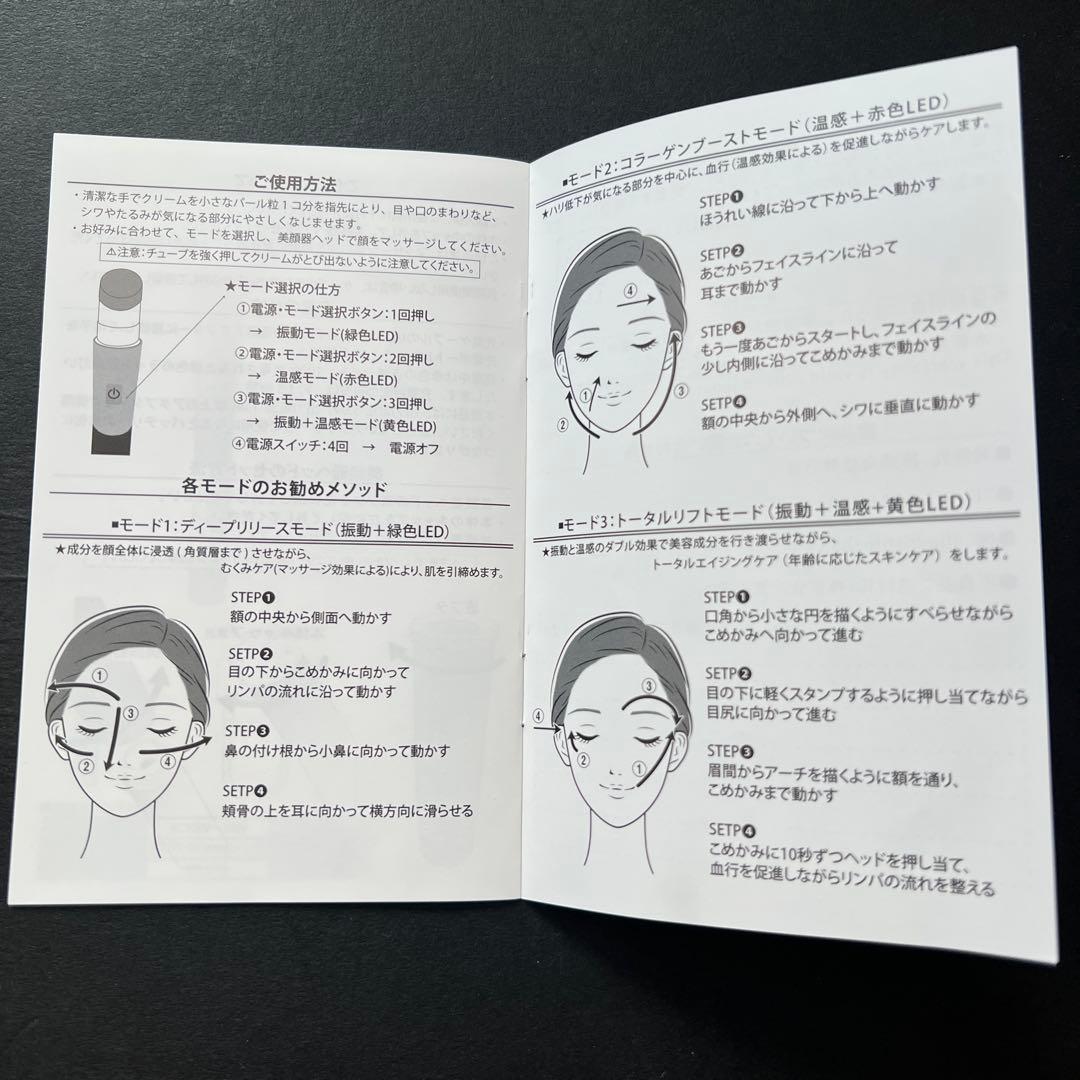 ご使用方法
・清潔な手でクリームを小さなパール粒1コ分を指先にとり、目や口のまわりなど、
シワやたるみが気になる部分にやさしくなじませます。
・お好みに合わせて、モードを選択し、美顔器ヘッドで顔をマッサージしてください。
⚠注意：チューブを強く押してクリームがとび出ないように注意してください。
★モード選択の仕方
①電源・モード選択ボタン：1回押し
→ 振動モード(緑色LED)
②電源・モード選択ボタン：2回押し
→ 温感モード(赤色LED)
③電源・モード選択ボタン：3回押し
→ 振動+温感モード(黄色LED)
④電源スイッチ：4回 → 電源オフ
各モードのお勧めメソッド
■モード1：ディープリリースモード(振動＋緑色LED)
★成分を顔全体に浸透(角質層まで)させながら、
むくみケア(マッサージ効果による)により、肌を引締めます。
STEP❶
額の中央から側面へ動かす
SETP❷
目の下からこめかみに向かって
リンパの流れに沿って動かす
STEP❸
鼻の付け根から小鼻に向かって動かす
SETP❹
頬骨の上を耳に向かって横方向に滑らせる
①
③
②
④
■モード2：コラーゲンブーストモード(温感＋赤色LED)
★ハリ低下が気になる部分を中心に、血行(温感効果による)を促進しながらケアします。
STEP❶
ほうれい線に沿って下から上へ動かす
SETP❷
あごからフェイスラインに沿って
耳まで動かす
STEP❸
もう一度あごからスタートし、フェイスラインの
少し内側に沿ってこめかみまで動かす
SETP❹
額の中央から外側へ、シワに垂直に動かす
④
①
③
②
■モード3：トータルリフトモード(振動＋温感+黄色LED)
★振動と温感のダブル効果で美容成分を行き渡らせながら、
トータルエイジングケア(年齢に応じたスキンケア)をします。
STEP❶
口角から小さな円を描くようにすべらせながら
こめかみへ向かって進む
SETP❷
目の下に軽くスタンプするように押し当てながら
目尻に向かって進む
STEP❸
眉間からアーチを描くように額を通り、
こめかみまで動かす
SETP❹
こめかみに10秒ずつヘッドを押し当て、
血行を促進しながらリンパの流れを整える
③
④
②
①